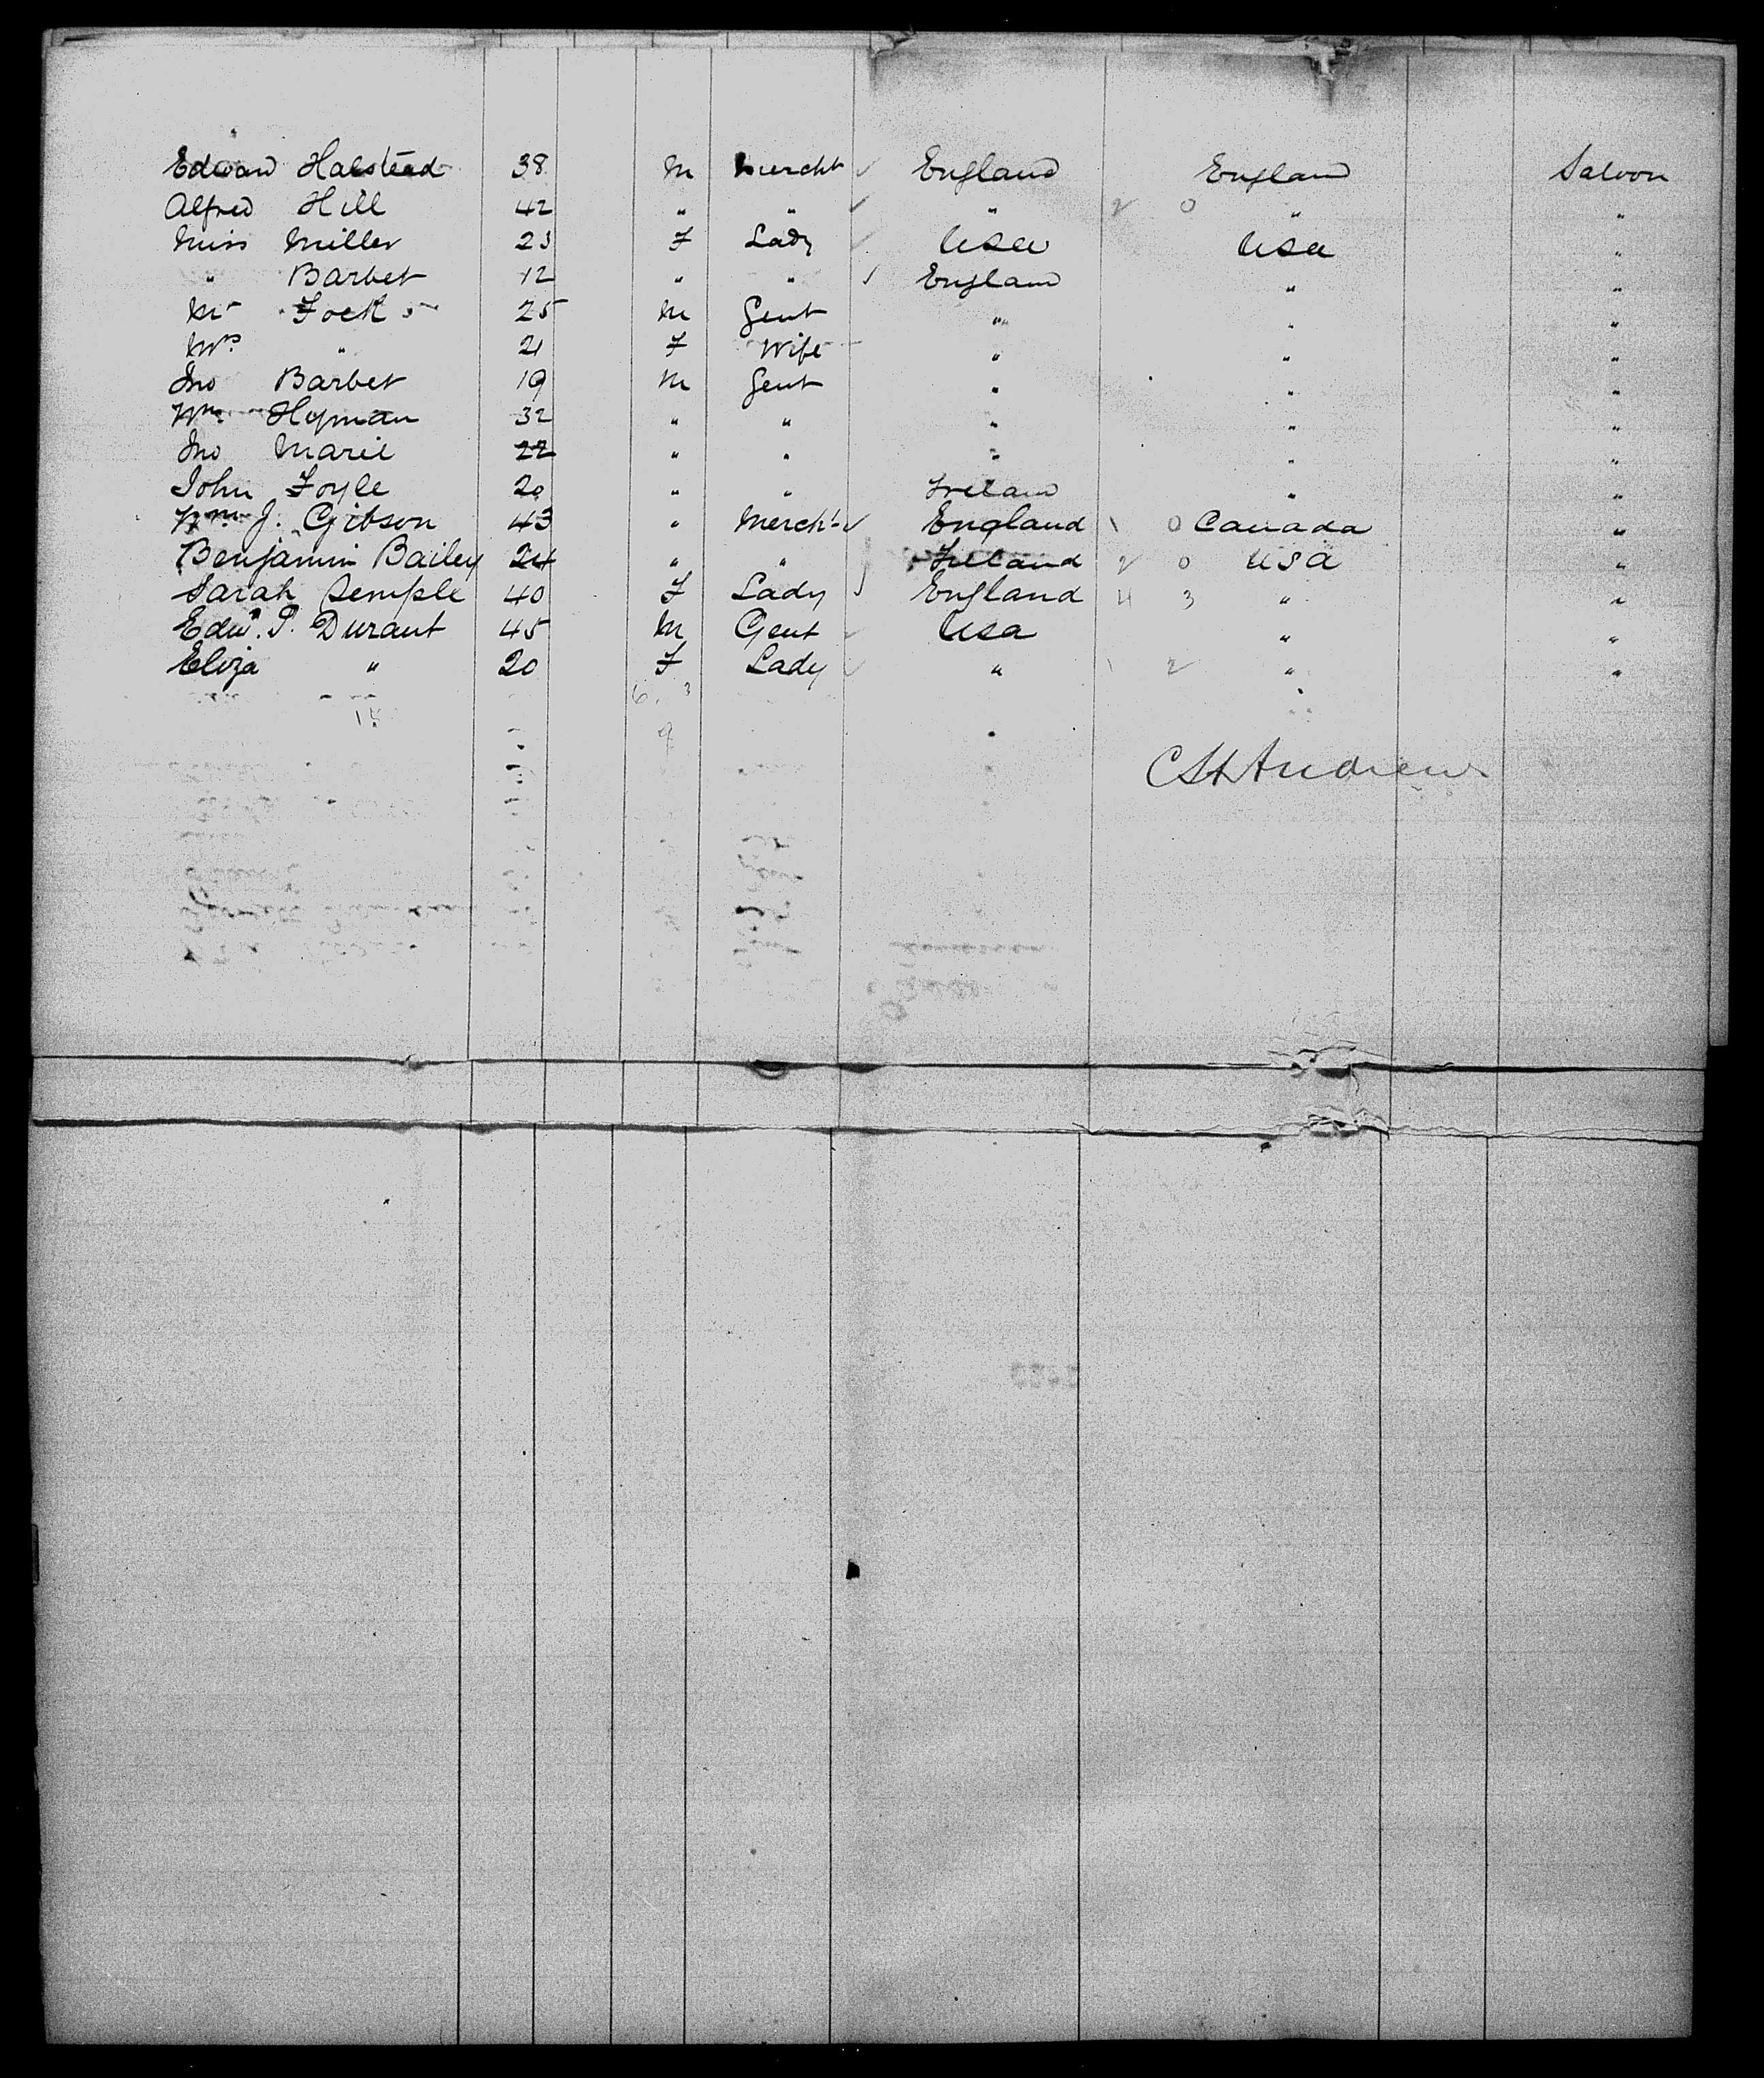 Edward Halstead 38 M Mercht England England Saloon
Alfred Hill 42 " " " 2 0 " "
Miss Miller 23 F Lady USA USA "
" Barbet 12 " " England " "
Mr Fock 25 M Gent " " "
Mrs " 21 F Wife " " "
Jno Barbet 19 M Gent " " "
Wm Hyman 32 " " " " "
Jno Marie 22 " " " " "
John Foyle 20 " " Ireland " "
Wm J. Gibson 43 " Mercht England 1 0 Canada "
Benjamin Bailey 24 " " Ireland 2 0 USA "
Sarah Semple 40 F Lady England 4 3 " "
Edw. P. Durant 45 M Gent USA " "
Eliza " 20 F Lady " 1 2 " "
6 3
9
C St Andrews